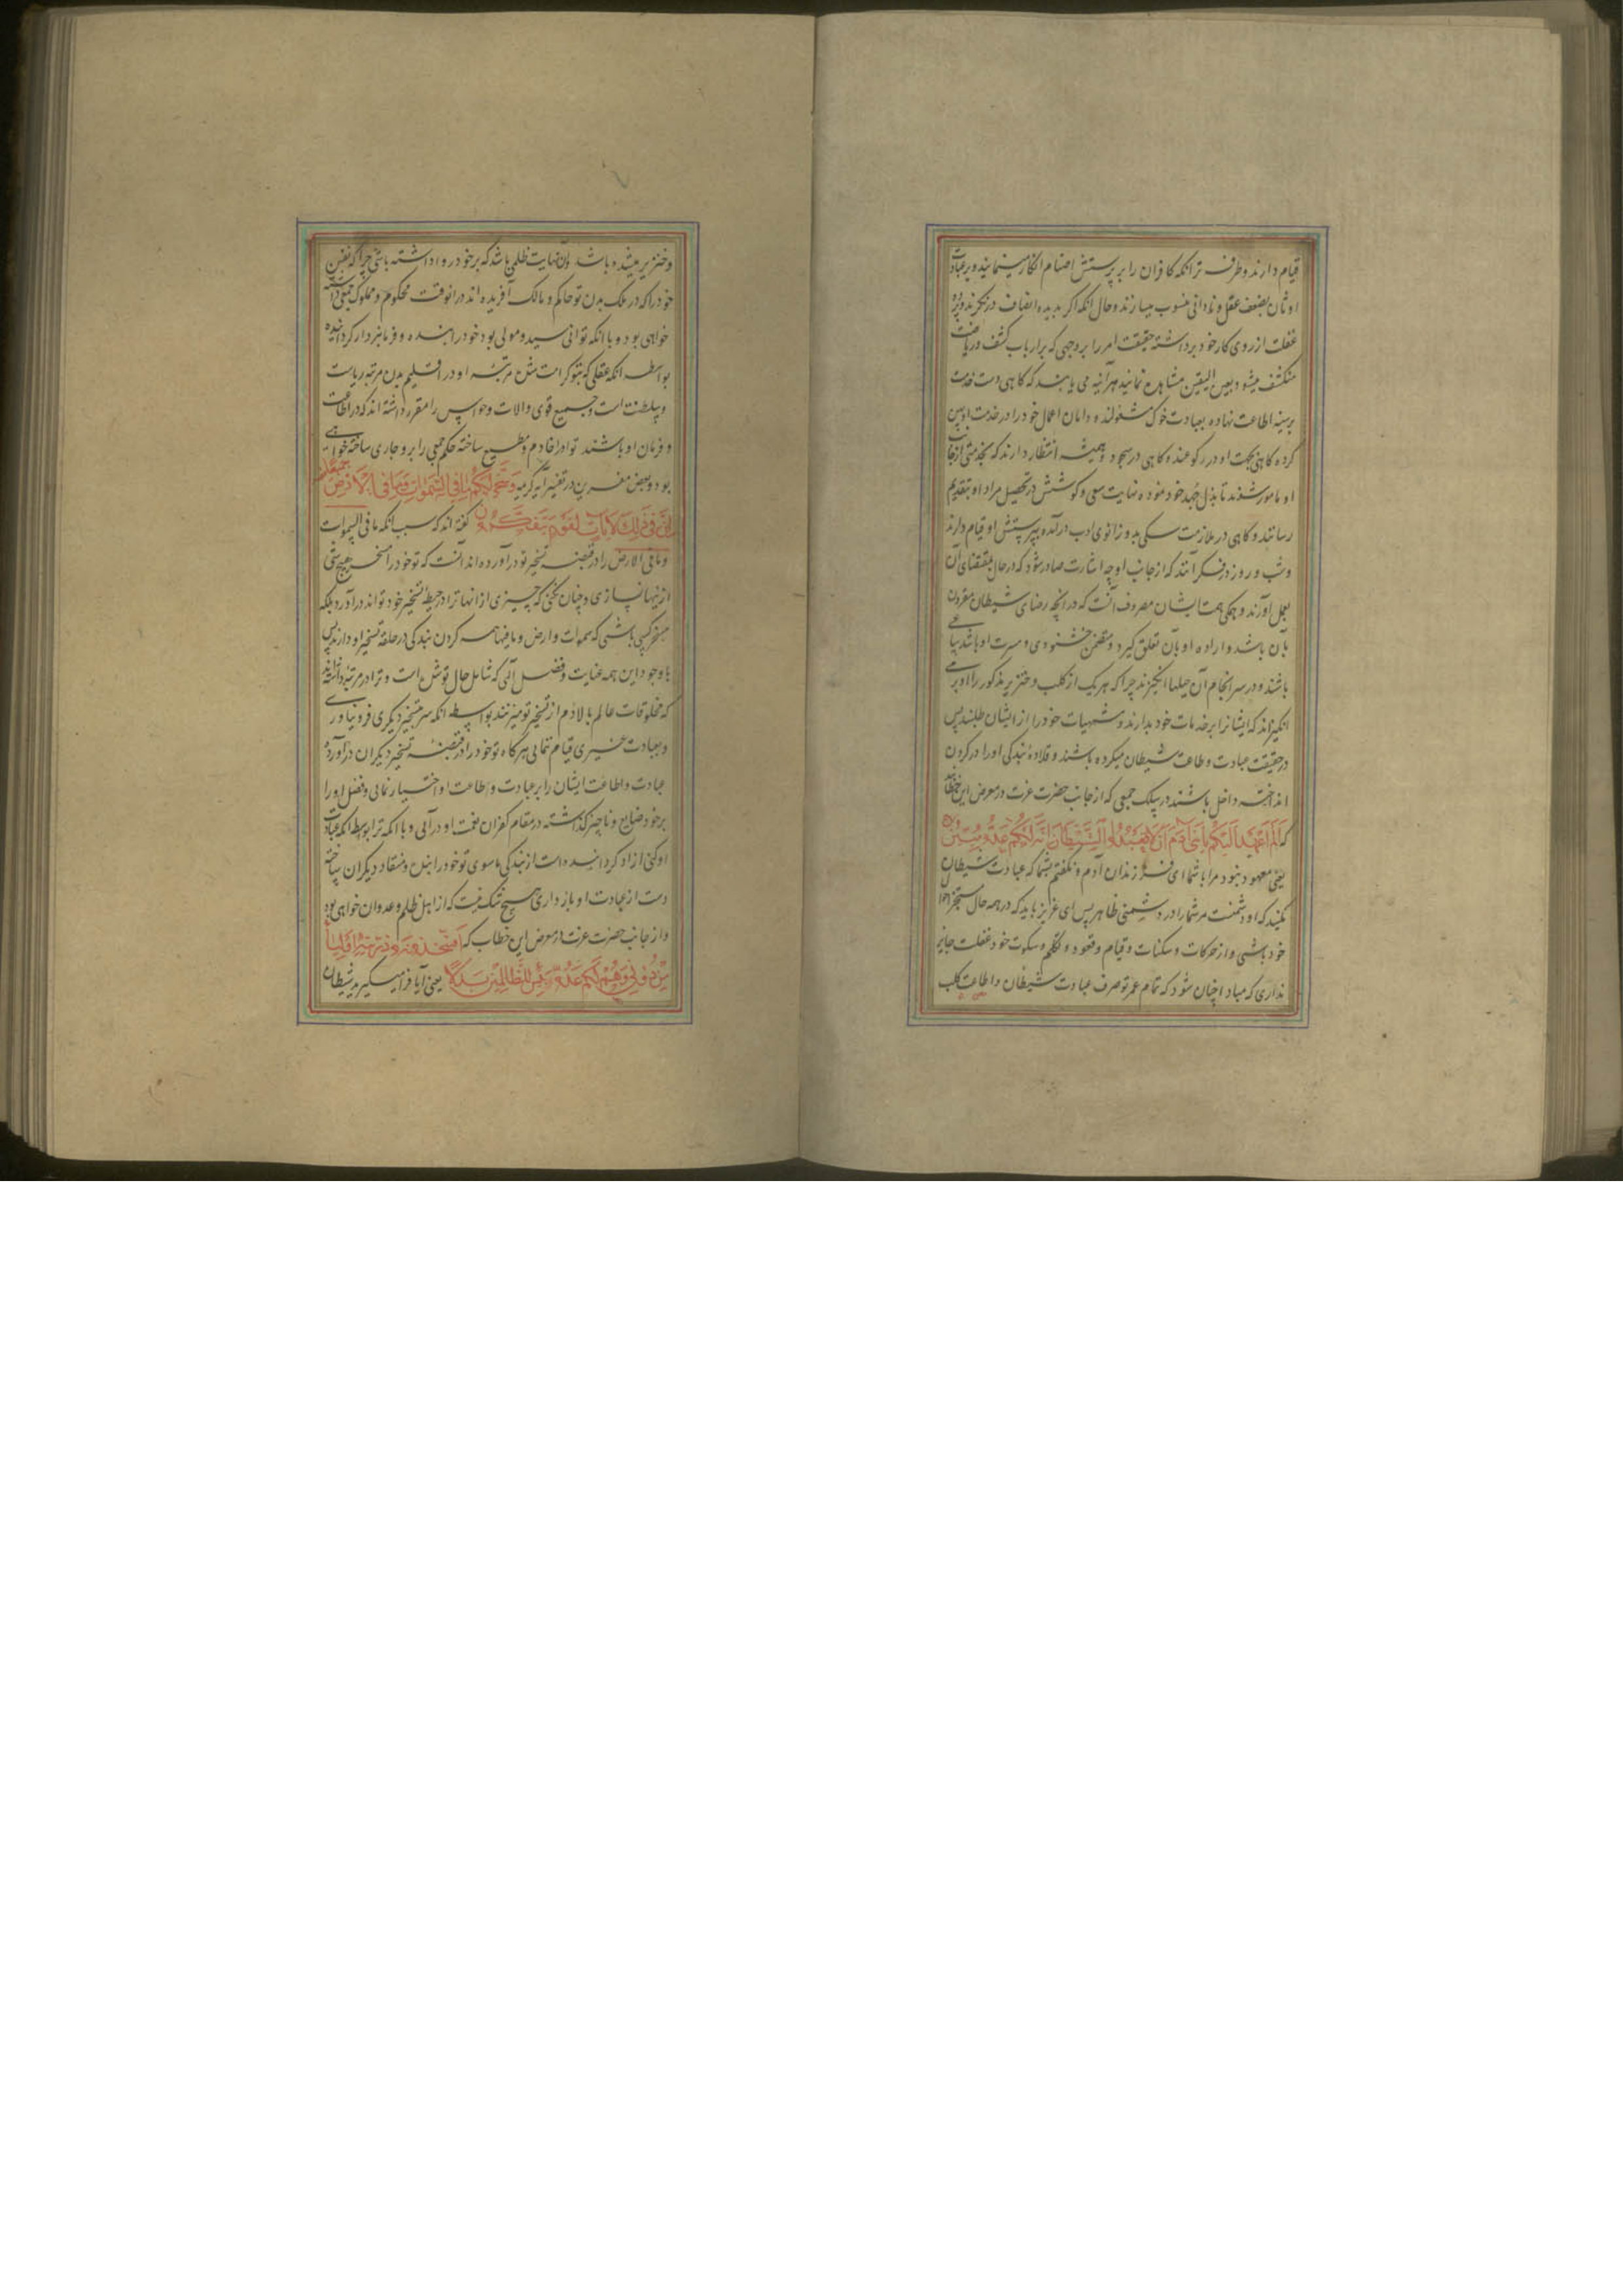 قیام دارند و طرفه تر انکه کافران را بر پرستش اصنام انکار مینمایند و بر عبادت
اوثان بضعف عقل و نادانی منسوب میسازند و حال انکه اکر بدیده انصاف درنکرند و پرده
غفلت از روی کار خود برداشته حقیقت امر را بر وجهی که بر ارباب کشف و ریاضت
منکشف میشود بعین الیقین مشاهده نمایند هر آینه می یابند که کاهی دست خدمت
بر سینه اطاعت نهاده بعبادت خوک مشغولند و دامان اعمال خود را در خدمت او بر
کرده کاهی بجهت او در رکوعند و کاهی در سجود و همیشه انتظار دارند که بخدمتی از جانب
او مامور شوند تا بذل جهد خود نموده نهایت سعی و کوشش در تحصیل مراد او بتقدیم
رسانند و کاهی در ملازمت سکی بدو زانوی ادب درآمده بپرستش او قیام دارند
و شب و روز در فکر آنند که از جانب او چه اشارت صادر شود که در حال بمقتضای آن
بعمل آورند و همکی همت ایشان مصروف آنست که در انچه رضای شیطان مقرون
بآن باشد و اراده او بآن تعلق کیرد و متضمن خشنودی و مسرت او باشد ساعی
باشند و در سرانجام آن حیلها انکیزند چرا که هر یک از کلب و خنزیر مذکور را او بر می
انکیزاند که ایشانرا بر خدمات خود بدارند و مشتهیات خود را از ایشان طلبند پس
در حقیقت عبادت و طاعت شیطان میکرده باشند و قلاده بندکی او را در کردن
انداخته داخل باشند در سلک جمعی که از جانب حضرت عزت در معرض این خطابند
که أَلَمْ أَعْهَدْ إِلَيْكُمْ يَا بَنِي آدَمَ أَنْ لَا تَعْبُدُوا الشَّيْطَانَ إِنَّهُ لَكُمْ عَدُوٌّ مُبِينٌ
یعنی معهود نبود مرا با شما ای فرزندان آدم و نکفتم بشما که عبادت شیطان
نکنید که او دشمنست مر شما را در دشمنی ظاهر پس ای عزیز باید که در همه حال
خود باشی و از حرکات و سکنات و قیام و قعود و تکلم و سکوت خود غفلت جایز
نداری که مبادا چنان شود که تمام عمر تو صرف عبادت شیطان و اطاعت کلب
و خنزیر میشده باشد و آن نهایت ظلمی باشد که بر خود روا داشته باشی چرا که نفس
خود را که در ملک بدن تو حاکم و مالک آفریده اند در انوقت محکوم و مملوک جمعی داشته
خواهی بود و با انکه توانی سید و مولی بود خود را بنده و فرمانبردار کردانیده
بواسطه انکه عقلی که بتو کرامت شده مرتبه او در اقلیم بدن مرتبه ریاست
و سلطنت است و جمیع قوی و الات و حواس را مقرر داشته اند که در اطاعت
و فرمان او باشند تو او را خادم و مطیع ساخته حکم جمعی را برو جاری ساخته خواهی
بود و بعض مفسرین در تفسیر آیه کریمه وَسَخَّرَ لَكُمْ مَا فِي السَّمَوَاتِ وَمَا فِي الْأَرْضِ جَمِيعًا
إِنَّ فِي ذَلِكَ لَآيَاتٍ لِقَوْمٍ يَتَفَكَّرُونَ کفته اند که سبب انکه ما فی السموات
و ما فی الارض را در قبضه تسخیر تو درآورده اند آنست که تو خود را مسخر هیچ شی
از اینها نسازی و چنان نکنی که چیزی از انها ترا در حیطه تسخیر خود تواند درآورد بلکه
مسخر کسی باشی که سموات و ارض و ما فیها همه کردن بندکی در حلقه تسخیر او دارند پس
با وجود این همه عنایت و فضل آلهی که شامل حال تو شده است و ترا در مرتبه داشته اند
که مخلوقات عالم بالا دم از تسخیر تو میزنند بواسطه انکه سر بتسخیر دیکری فرو نیاوری
و بعبادت غیری قیام ننمایی هر کاه تو خود را در قبضه تسخیر دیکران درآورده
عبادت و اطاعت ایشان را بر عبادت و اطاعت او اختیار نمایی و فضل او را
بر خود ضایع و ناچیز کذاشته در مقام کفران نعمت او درآیی و با انکه ترا بواسطه انکه عبادت
او کنی ازاد کردانیده است از بندکی ماسوی تو خود را بنده و منقاد دیکران ساخته
دست از عبادت او بازداری هیچ شک نیست که از اهل ظلم و عدوان خواهی بود
و از جانب حضرت عزت در معرض این خطاب که أَفَتَتَّخِذُونَهُ وَذُرِّيَّتَهُ أَوْلِيَاءَ
مِنْ دُونِي وَهُمْ لَكُمْ عَدُوٌّ بِئْسَ لِلظَّالِمِينَ بَدَلًا یعنی آیا فرا میکیرید شیطان